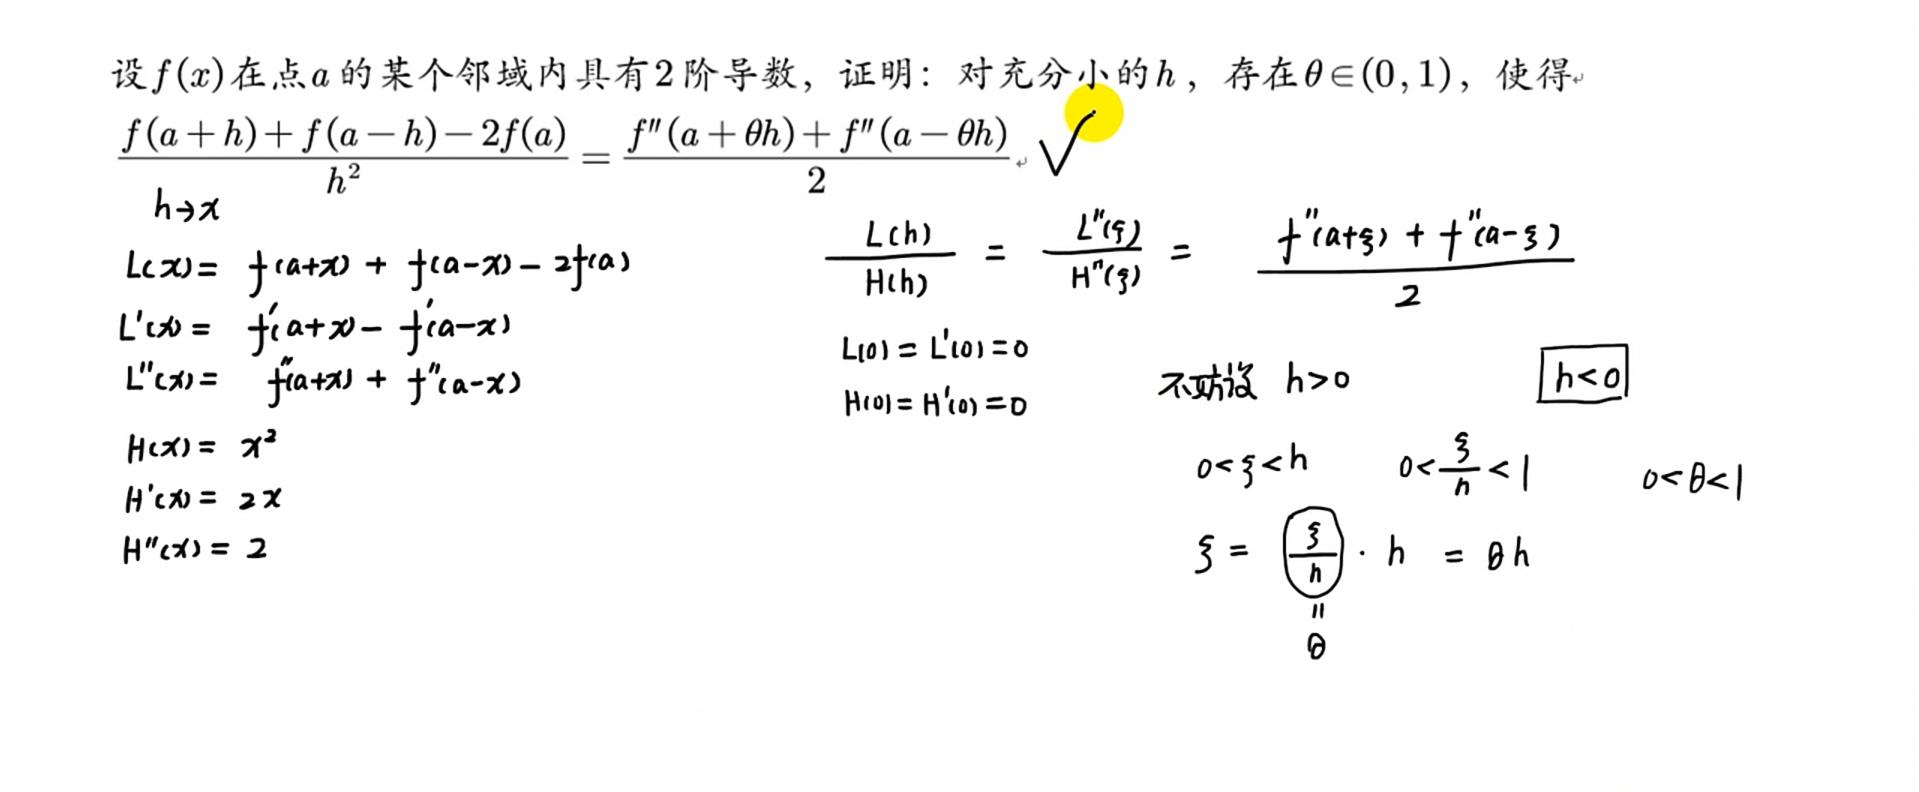 设f(x)在点a的某个邻域内具有2阶导数，证明：对充分小的h，存在θ∈(0,1)，使得
f(a+h)+f(a−h)−2f(a)/h² = f″(a+θh)+f″(a−θh)/2. √
h→x
L(x)= f(a+x) + f(a-x) - 2f(a)
L'(x)= f'(a+x) - f'(a-x)
L"(x)= f"(a+x) + f"(a-x)
H(x)= x²
H'(x)= 2x
H"(x)= 2
L(h)/H(h) = L"(ξ)/H"(ξ) = f"(a+ξ) + f"(a-ξ)/2
L(0)=L'(0)=0
H(0)=H'(0)=0
不妨设 h>0
h<0
0<ξ<h 0<ξ/h<1 0<θ<1
ξ= ξ/h · h = θh
=
θ